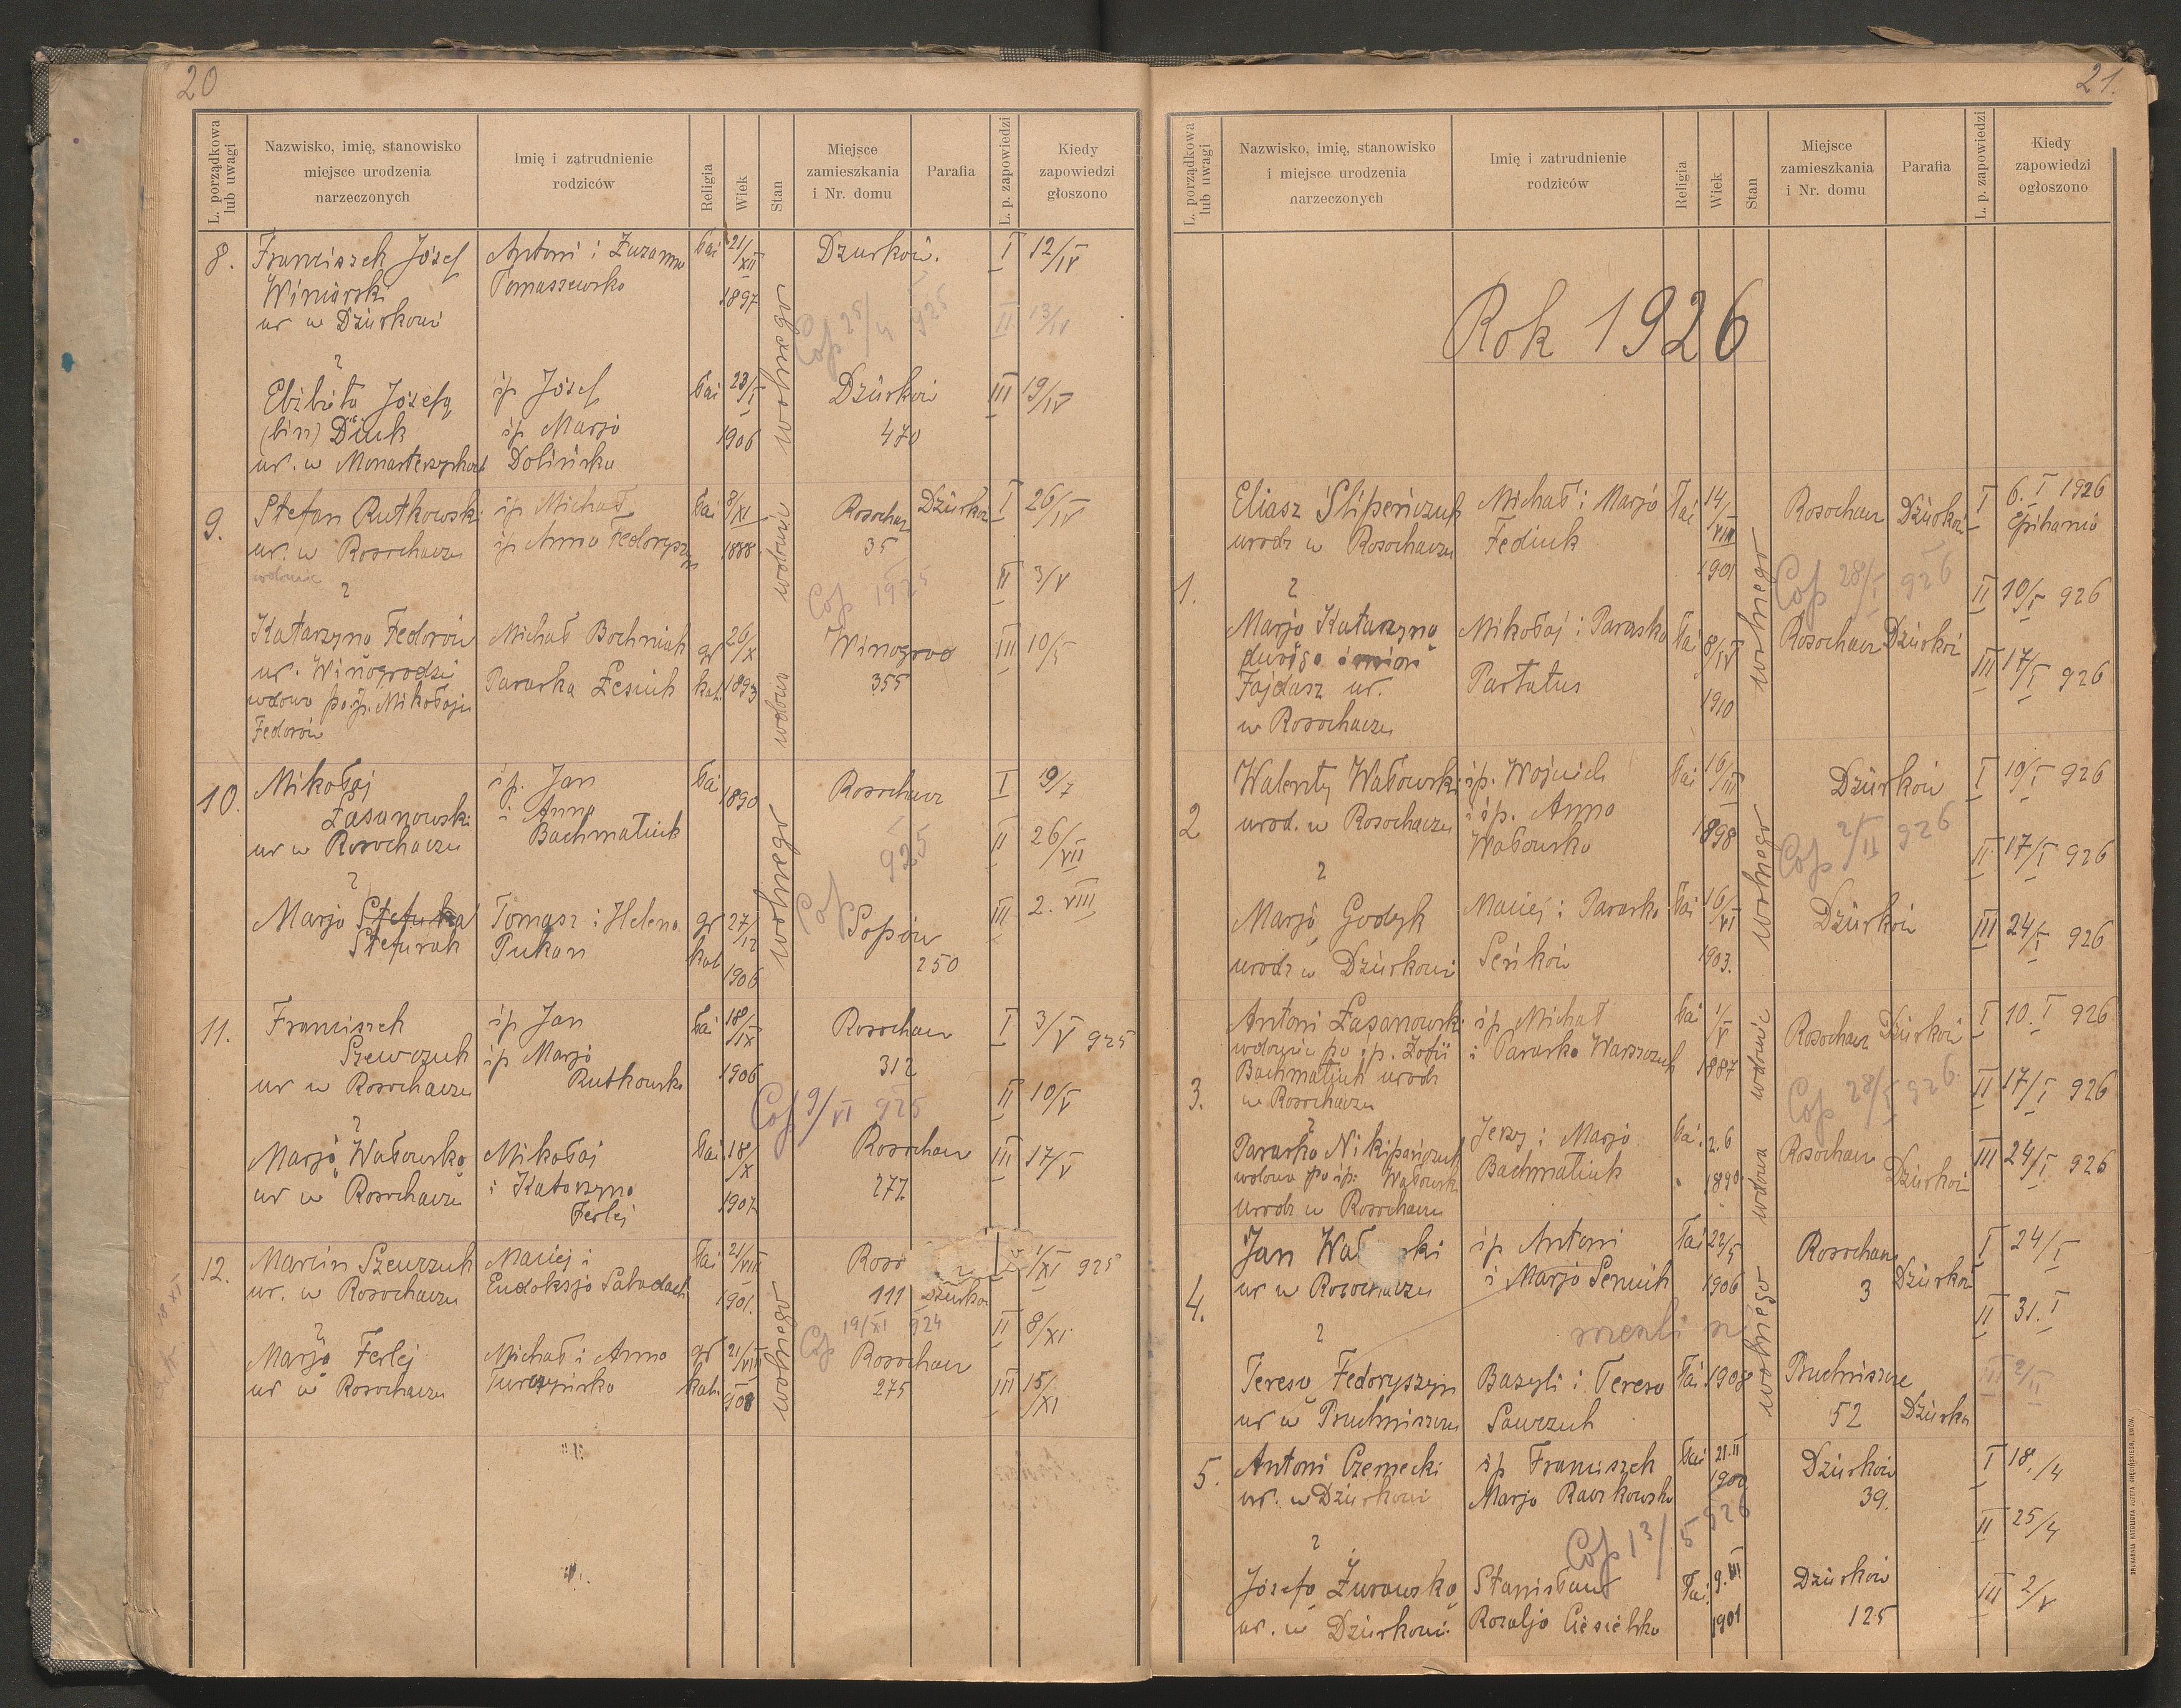 20
L. porządkowa lub uwagi
Nazwisko, imię, stanowisko
miejsce urodzenia
narzeczonych
Imię i zatrudnienie
rodziców
Religia
Wiek
Stan
Miejsce
zamieszkania
i Nr. domu
Parafia
L. p. zapowiedzi
Kiedy
zapowiedzi
głoszono
8. Franciszek Józef Antoni i Zuzanna łaś 21/XII Dzurków. I 12/IV
Winiarski Tomaszewska 1897
ur w Dzurkowi wolnego Cop 25/4 925 II 13/IV
Elżbieta Józefa śp Józef łaś 23/I Dzurków III 19/IV
(bin) Diuk śp Marja 1906 470
ur. w Monasterzyskach Dolińska
9. Stefan Rutkowski śp Michał łaś 8/XI wdowiec Rosochacz Dzurków I 26/IV
ur. w Rosochaczu śp Anna Fedoryszyn 1888 35
wdowiec Cop 1925 II 3/V
Katarzyna Fedorów Michał Bochniak gr 26/X wdowa Winograd III 10/5
ur. Winogrodzi Paraska Łesiuk kat. 1893 355
wdowa po śp. Mikołaju
Fedorów
10. Mikołaj śp. Jan łaś 1890 Rosochacz I 19/7
Łasanowski i Anna
ur w Rosochaczu Bachmatiuk wolnego Cop 925 II 26/VII
Marja Stefuka Tomasz i Helena gr 27/12 Sopów III 2. VIII
Stefurak Pukan kat 1906 250
11. Franciszek śp Jan łaś 18/IX Rosochacz I 3/V 925
Szewczuk śp Marja 1906 312
ur w Rosochaczu Rutkowska Cop 9/VI 925 II 10/V
Marja Wałowska Mikołaj łaś 18/X Rosochacz III 17/V
ur w Rosochaczu i Katarzyna 1907 277
Ferlej
12. Marcin Szewczuk Maciej i łaś 21/VIII Roso 1/XI 925
ur. w Rosochaczu Eudoksja Sałodach 1901. wolnego 111 Dzurków
Cop 19/XI 924 II 8/XI
Marja Ferlej Michał i Anna gr 21/VIII Rosochacz III 15/XI
ur w Rosochaczu Turczyńska kat. 908 275
21.
L. porządkowa lub uwagi
Nazwisko, imię, stanowisko
i miejsce urodzenia
narzeczonych
Imię i zatrudnienie
rodziców
Religia
Wiek
Stan
Miejsce
zamieszkania
i Nr. domu
Parafia
L. p. zapowiedzi
Kiedy
zapowiedzi
ogłoszono
Rok 1926
1. Eliasz Ślipeńczuk Michał i Marja łaś 14/VIII Rosochacz Dzurków I 6. I 1926
urodz w Rosochaczu Fediuk 1901 wolnego Epihania
Cop 28/I 926 II 10/I 926
Marja Katarzyna Mikołaj i Paraska łaś 8/IV Rosochacz Dzurków
dwojga imion III 17/I 926
Fajdasz ur. Partatus 1910
w Rosochaczu
2 Walenty Wałowski śp. Wojciech łaś 16/III Dzurków I 10/I 926
urod. w Rosochaczu i śp. Anna 1898
Wałowska wolnego Cop 2/II 926 II 17/I 926
Marja Godyk Maciej i Paraska łaś 16/VI Dzurków III 24/I 926
urodz w Dzurkowi Seńków 1903.
3. Antoni Łasanowski śp Michał łaś 1/V wdowiec Rosochacz Dzurków I 10. I 926
wdowiec po śp. Zofii i Paraska Warszczuk 1887
Bachmatiuk urodz Cop 28/I 926. II 17/I 926
w Rosochaczu
Paraska Nikipańczuk Jerzy i Marja łaś. 2.6 wdowa Rosochacz III 24/I 926
wdowa po śp. Wałowski Bachmatiuk 1890 Dzurków
urodz w Rosochaczu
4. Jan Wał ski śp Antoni łaś 22/5 Rosochacz I 24/I
ur w Rosochaczu i Marja Seniuk 1906 3 Dzurków
wolnego II 31. I
Teresa Fedoryszyn Bazyli i Teresa łaś 1908 Puchniszcze III 2/II
ur w Puchniszczu Sawczuk 52 Dzurków
5. Antoni Czernecki śp Franciszek łaś 21.II 1900 Dzurków I 18./4
ur. w Dzurkowi Marja Raczkowska 39.
Cop 13/5 926 II 25/4
Józefa Żurawska Stanisław łaś 9.III Dzurków III 2/V
ur. w Dzurkowi. Rozalja Ciesielska 1901 125